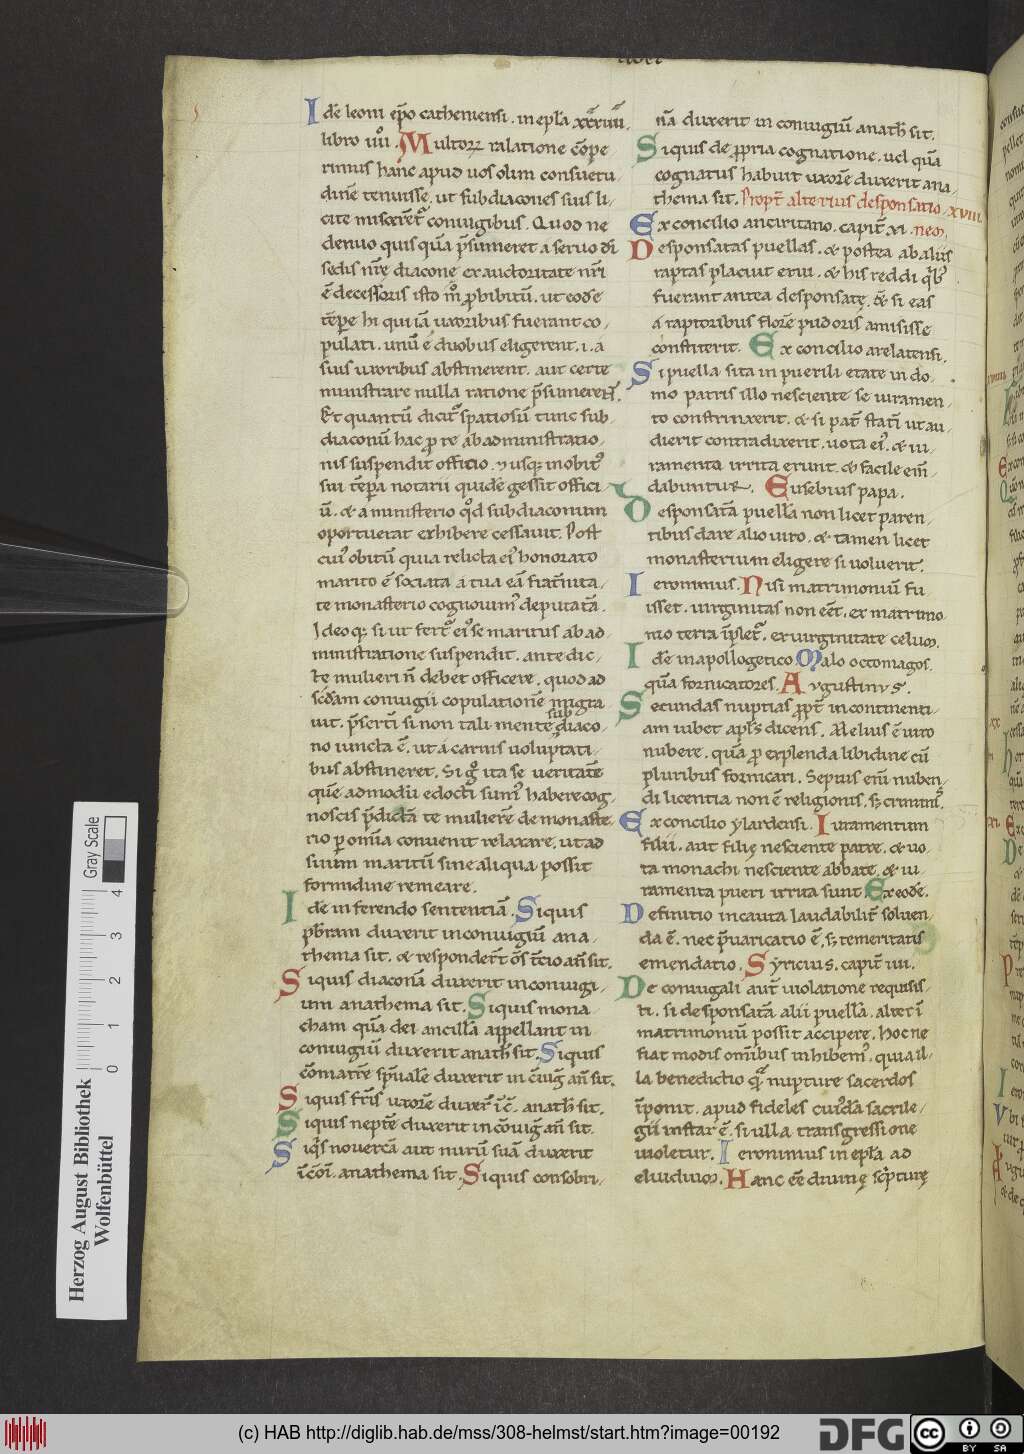 Idẽ leoni ep̃o catheniensi. in epl̃a xxxiiii.
libro iiii. Multorꝝ ralatione cõpe
rimus hanc apud uos olim consuetu
dinẽ tenuisse. ut subdiacones suis li
cite miscerẽt coniugibus. Quod ne
denuo quis quã p̃sumeret a seruo di
sedis nr̃e diacone ex auctoritate nr̃i
ẽ decessoris isto m̊ p̱hibitũ. ut eodẽ
tẽpe hi qui iã uxoribus fuerant co
pulati. unũ e duobus eligerent. i. a
suis uxoribus abstinerent. aut certe
ministrare nulla ratione p̃sumerent.
Et quantũ dicit̃ spatiosũ tunc sub
diaconũ hac ꝓ re ab administratio
nis suspendit officio. ⁊ usqꝫ in obitꝰ
sui tẽpa notarii quidẽ gessit offici
ũ. & a ministerio qd̃ subdiaconum
oportuerat exhibere cessauit. Post
cuiꝰ obitũ quia relicta eiꝰ honorato
marito ẽ sociata a tua eã fiat̃nita
te monasterio cognouimꝰ deputatã.
Ideoqꝫ si ut fert̃ eiꝰ se maritus ab ad
ministratione suspendit. ante dic
te mulieri ñ debet officere. quod ad
scd̃am coniugii copulationẽ migra
uit. p̃sertĩ si non tali mente subdiaco
no iuncta ẽ. ut a carnis uoluptati
bus abstineret. Si g̊ ita se ueritatẽ
quẽ admodũ edocti sumꝰ habere cog
noscis p̃dictã te mulierẽ de monaste
rio ꝑ om̃ia conuenit relaxare. ut ad
suum maritũ sine aliqua possit
formidine remeare.
Idẽ in ferendo sententiã. Siquis
pb̃ram duxerit in coniugiũ ana
thema sit. & respondert̃ õs t̃cio añ sit.
Siquis diaconã duxerit in coniugi
um anathema sit. Siquis mona
cham quã dei ancillã appellant in
coniugiũ duxerit anath̃ sit. Siquis
cõmatrẽ sp̃ualẽ duxerit in c̃iug̃ añ sit.
Siquis fr̃is uxorẽ duxer̃ ĩ c̃. anath̃ sit.
Siquis neptẽ duxerit in cõiug̃ añ sit.
Siqi̓s nouercã aut nurũ suã duxerit
ĩ cõi. anathema sit. Siquis consobri
nã duxerit in coniugiũ anath̃ sit.
Siquis de ꝓpria cognatione. uel quã
cognatus habuit uxorẽ duxerit ana
thema sit. Propt̃ alterius desponsatio xviii.
Ex concilio anciritano. capit̃ xi. nem.
Desponsatas puellas. & postea ab aliis
raptas placuit erui. & his reddi qi̓bꝰ
fuerant antea desponsatę. & si eas
a raptoribus florẽ pudoris amisisse
constiterit. Ex concilio arelatensi.
Si puella sita in puerili etate in do
mo patris illo nesciente se iuramen
to constrinxerit. & si pat̃ statĩ ut au
dierit contradixerit. uota eiꝰ. & iu
ramenta irrita erunt. & facile em̃
dabuntur. Eusebius papa.
Desponsatã puellã non licet paren
tibus dare alio uiro. & tamen licet
monasterium eligere si uoluerit.
Ieronimus. Nisi matrimoniũ fu
isset. uirginitas non eẽt. ex matrimo
nio terra ĩplet̃. ex uirginitate celum.
Idẽ in apollogetico. Malo octomagos.
quã fornicatores. Augustinus.
Secundas nuptias ꝓpt̃ incontinenti
am iubet apl̃s dicens. Melius ẽ uiro
nubere. quã ꝓ explenda libidine cũ
pluribus fornicari. Sepius em̃ nuben
di licentia non ẽ religionis. sꝫ criminis.
Ex concilio ylardensi. Iuramentum
filii. aut filię nesciente patre. & uo
ta monachi nesciente abbate. & iu
ramenta pueri irrita sunt. Ex eodẽ.
Definitio incauta laudabilit̃ soluen
da ẽ. nec p̃uaricatio ẽ. sꝫ temeritatis
emendatio. Syricius. capit̃ iiii.
De coniugali aut̃ uiolatione requisis
ti. si desponsatã alii puellã. alter ĩ
matrimoniũ possit accipere. hoc ne
fiat modis om̃ibus inhibemꝰ. quia il
la benedictio q̃ nupture sacerdos
ĩponit. apud fideles cuiꝰdã sacrile
gii instar ẽ. si ulla transgressione
uioletur. Ieronimus in epl̃a ad
eluidium. Hanc eẽ diuinę sc̃pturę
Gray Scale
0 1 2 3 4
Herzog August Bibliothek
Wolfenbüttel
(c) HAB http://diglib.hab.de/mss/308-helmst/start.htm?image=00192
DFG
cc
BY SA